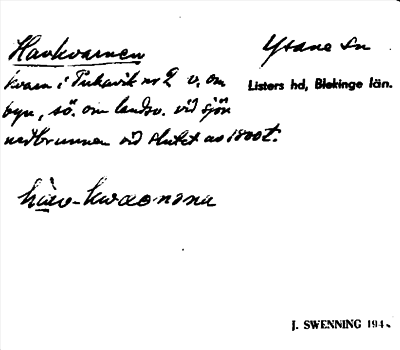 Havkvarnen
Ysane sn
kvarn i Pukavik nr 2 v. om
Listers hd, Blekinge län.
byn, sö. om landsv. vid sjön
nedbrunnen vid slutet av 1800t.
J. SWENNING 194